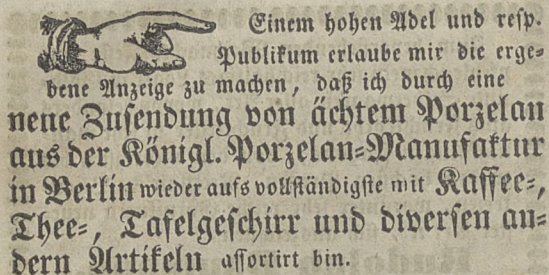 Einem hohen Adel und resp.
Publikum erlaube mir die erge=
bene Anzeige zu machen, daß ich durch eine
neue Zusendung von ächtem Porzelan
aus der Königl. Porzelan=Manufaktur
in Berlin wieder aufs vollständigste mit Kaffee=,
Thee=, Tafelgeschirr und diversen an=
dern Artikeln assortirt bin.